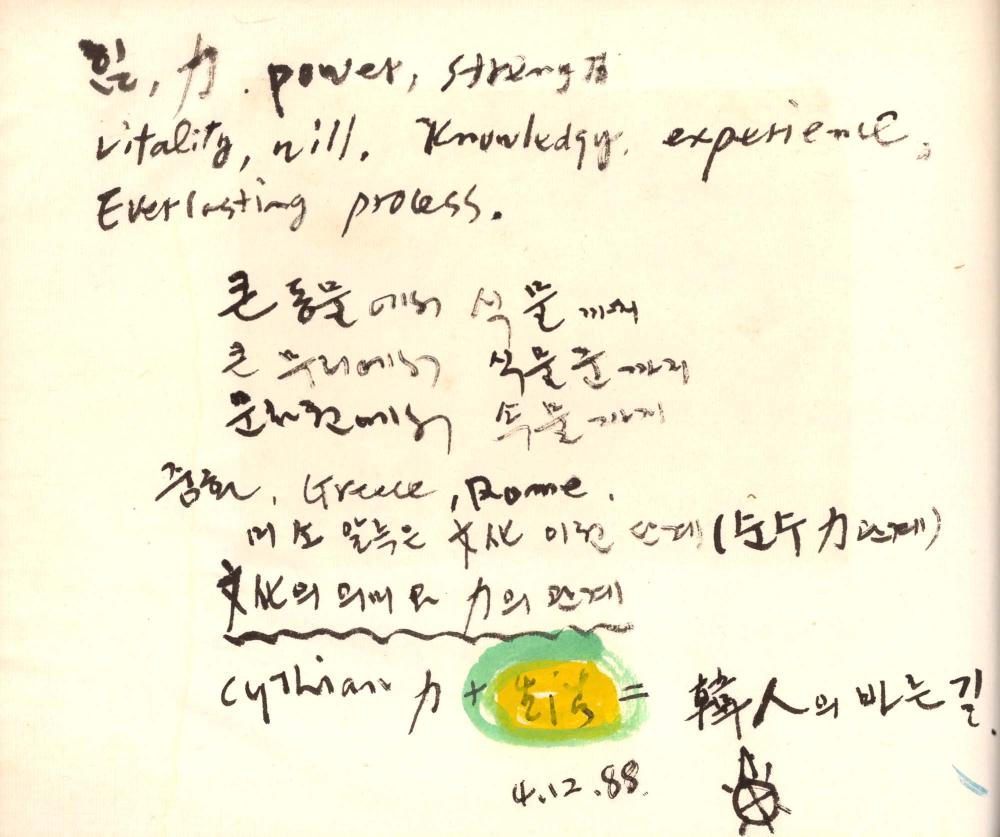 힘, 力. power, strength
vitality, will. Knowledgy. experience,
Everlasting process.
큰 동물에서 식물까지
큰 무리에서 식물군까지
문화권에서 속물까지
Greece, Rome.
미 소 일 文化 이전 단계 (순수 力 단계)
文化의 의미와 力의 관계
cythian 力 + = 韓人의 바른 길.
4.12.88.